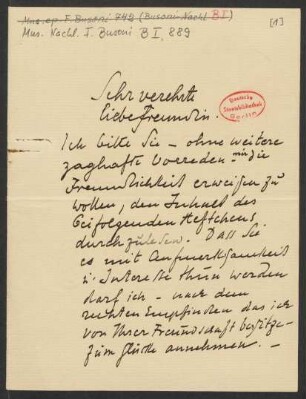 Mus. ep. F. Busoni 842 (Busoni-Nachl. B I)
[1]
Mus. Nachl. F. Busoni B I, 889
Deutsche
Staatsbibliothek
Berlin
Sehr verehrte
liebe Freundin.
Ich bitte Sie – ohne weitere
zaghafte Vorreden – mir die
Freundlichkeit erweisen zu
wollen, den Inhalt des
beifolgenden Heftchens
durchzulesen. Dass Sie
es mit Aufmerksamkeit
u. Interesse thun werden
darf ich – nach dem
Empfinden das ich
von Ihrer Freundschaft besitze –
zum Glücke annehmen. –